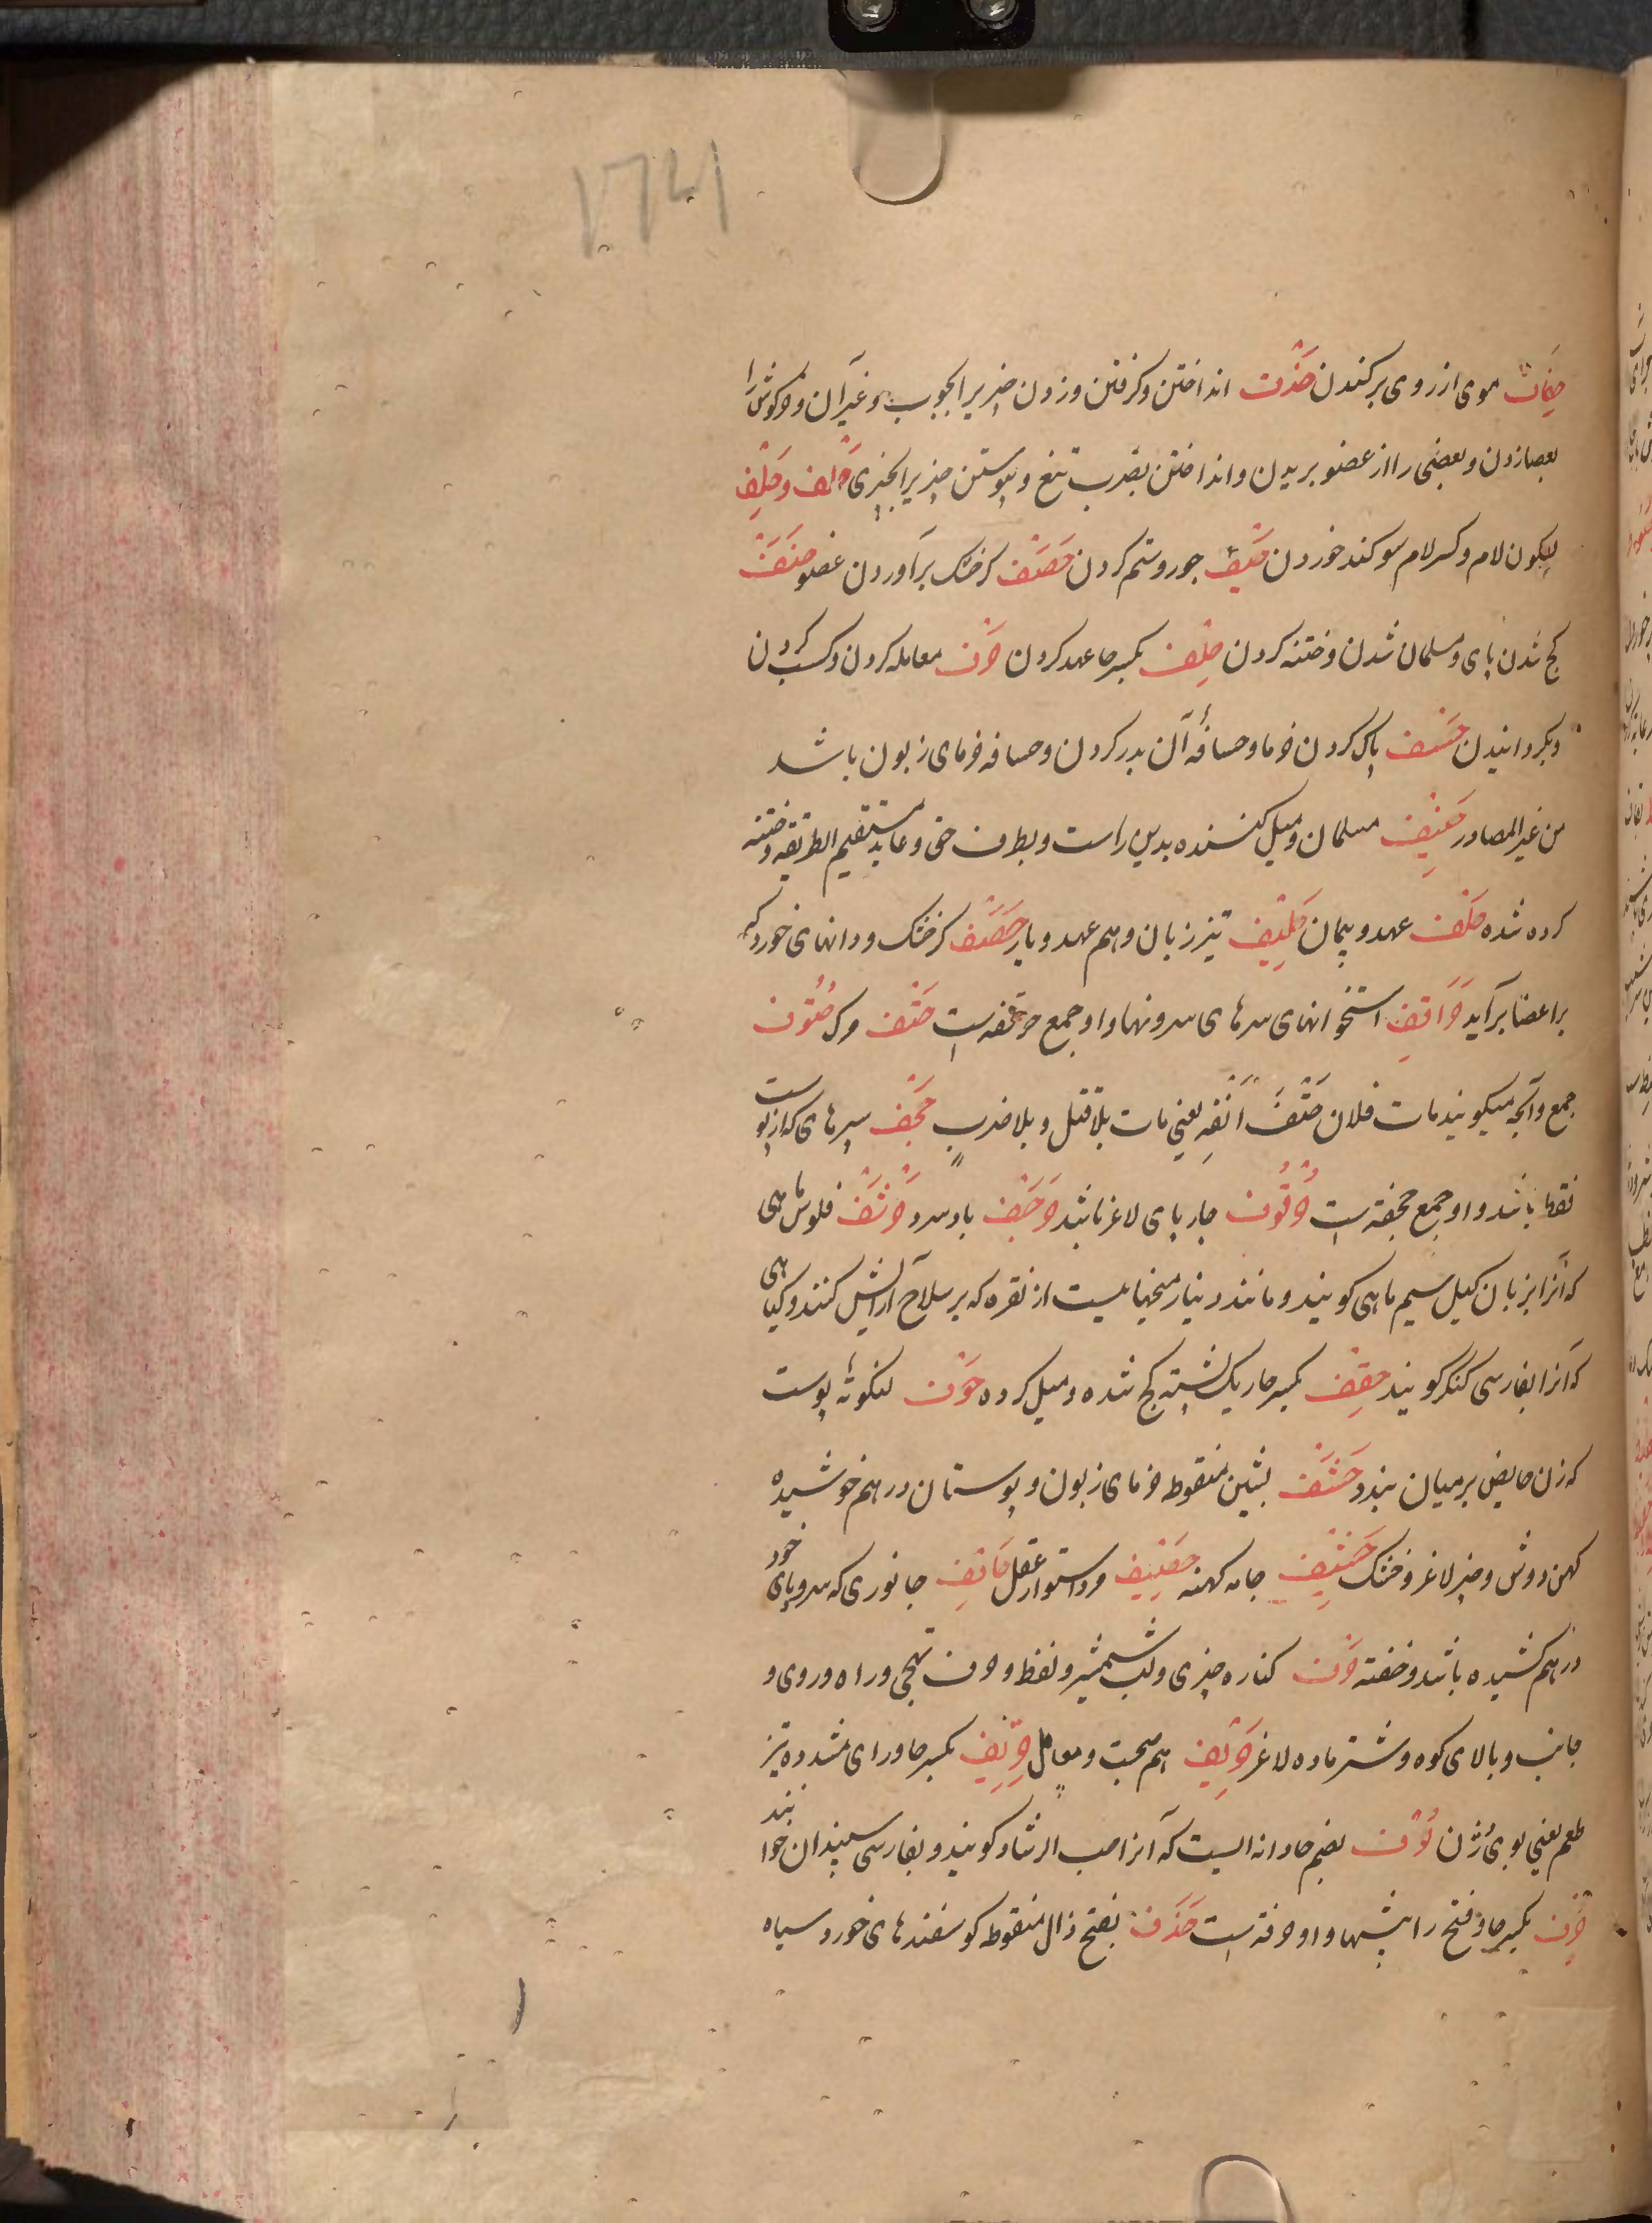 حِفَاف موی از روی برکندن حَذْف انداختن و کرفتن و زدن چیزیرا بچوب و غیر آن و خرکوش را
بعصا زدن و بعضی را از عضو بریدن و انداختن بضرب تیغ و پیوستن چیزیرا بچیزی حَلف و حَلِف
بسکون لام و کسر لام سوکند خوردن حَیْف جور و ستم کردن حَصَف کر خشک برآوردن عضو حَنَف
کج شدن پای و مسلمان شدن و ختنه کردن حِلْف بکسر حا عهد کردن حَرْف معامله کردن و کسب کردن
و بکردانیدن حَسْف پاک کردن خرما و حسافهٔ آن بدر کردن و حسافه خرمای زبون باشد
من غیر المصادر حَنِیف مسلمان و میل کننده بدین راست و بطرف حق و عابد مستقیم الطریقه و ختنه
کرده شده حلف عهد و پیمان حَلِیف تیز زبان و هم عهد و یار حَصَف کر خشک و دانهای خورد که
بر اعضا برآید حَرَاقِف استخوانهای سرهای سرونها و او جمع حرقفه است حَتْف مرک حُتُوف
جمع و آنچه میکویند مات فلان حَتْفَ اَنْفِهِ یعنی مات بلا قتل و بلا ضرب حَجَف سپرهای که از پوست
نقها باشد و او جمع حجفه است حُرْقُوف چارپای لاغر باشد حَرْجَف باد سرد حَرْشَف فلوس ماهی
که آنرا بزبان کیل سیم ماهی کویند و مانند دینار میخهاییست از نقره که بر سلاح آرایش کنند و کیاهی
که آنرا بفارسی کنکر کویند حِقْف بکسر حا ریک پشته کج شده و میل کرده حَوْف لنکوتهٔ پوست
که زن حایض بر میان بندد حَشَف بشین منقوط خرمای زبون و پوستان درهم خوشیده
کهن دوش و چیز لاغر و خشک حَشِیف جامه کهنه حَصِیف مرد استوار عقل حَاقِف جانوری که سر و پای خود
درهم کشیده باشد و خفته حَرْف کناره چیزی و لب شمشیر و لفظ و حرف تهجی و راه و روی و
جانب و بالای کوه و شتر ماده لاغر حَرِیف هم صحبت و معامل حِرِّیف بکسر حا و رای مشدده تیز
طعم یعنی بوی زن حُرْف بضم حا دانه ایست که آنرا حب الرشاد کویند و بفارسی سپندان خوانند
حِرَف بکسر حا و فتح را پیشها و او حرفه است حَذَف بفتح ذال منقوط کوسفندهای خورد سیاه